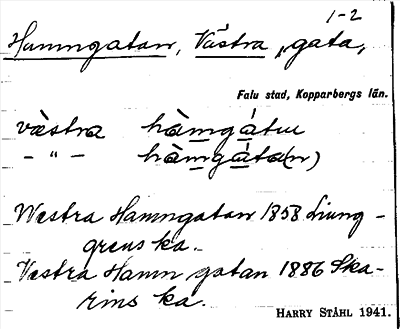 1-2
Hamngatan, Västra „gata„
Falu stad, Kopparbergs län.
væ̀stra hàmgátuu
– " – hàmgáta(n)
Westra Hamngatan 1858 Ljung-
grens ka.
Vestra Hamn gatan 1886 Ska-
rins ka.
HARRY STÅHL 1941.